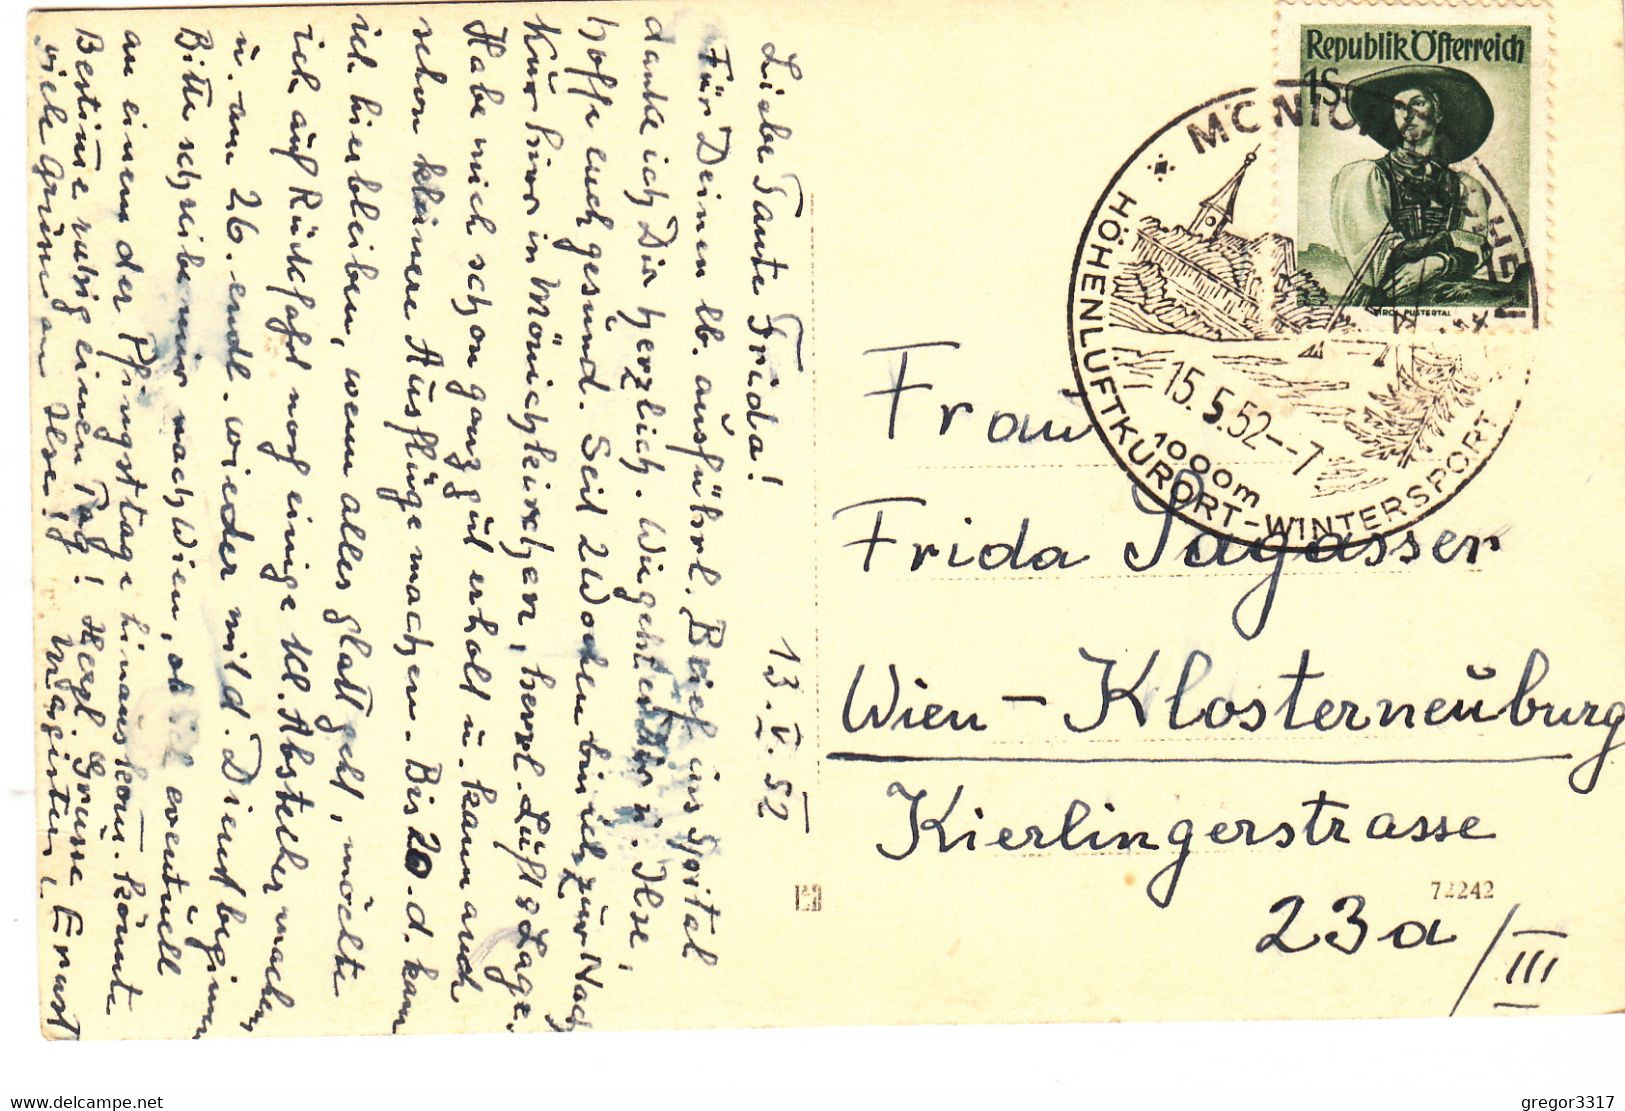 13. V. 52
Liebe Tante Frida!
Für Deinen lb. ausführl. Brief ins Spital
danke ich Dir herzlich. Wie geht es Dir u. Ilse,
hoffe euch gesund. Seit 2 Wochen bin ich zur Nach
Kur hier in Mönichkirchen, herrl. Luft u. Lage.
Habe mich schon ganz gut erholt u. kann auch
schon kleinere Ausflüge machen. Bis 20. d. kann
ich hier bleiben, wenn alles glatt geht, möchte
ich auf Rückfahrt noch einige kl. Abstecher machen
u. am 26. endl. wieder mit d. Dienst beginnen
Bitte schreibe mir nach Wien, ob ich eventuell
an einem der Pfingsttage hinauskom. könnte
Bestime ruhig einen Tag! Herzl. Grüsse Ernst
viele Grüsse an Ilse!
Republik Österreich
1S
TIROL PUSTERTAL
MÖNICHKIRCHEN
HÖHENLUFTKURORT-WINTERSPORT
1000m
15.5.52--7
Frau
Frida Pagasser
Wien - Klosterneuburg
Kierlingerstrasse
23a/III
72242
gregor3317
www.delcampe.net